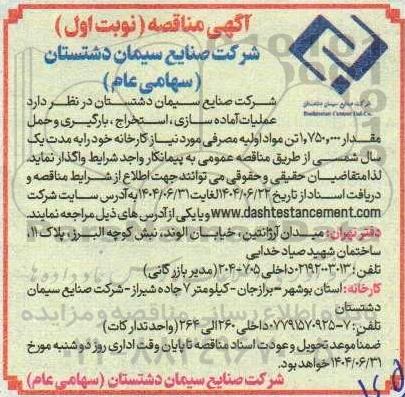 آگهی مناقصه ( نوبت اول )
شرکت صنایع سیمان دشتستان
( سهامی عام )
شرکت صنایع سیمان دشتستان
Dashtestan Cement Ltd.Co
شرکت صنایع سیمان دشتستان در نظر دارد
عملیات آماده سازی ، استخراج ، بارگیری و حمل
مقدار ۱,۷۵۰,۰۰۰ تن مواد اولیه مصرفی مورد نیاز کارخانه خود را به مدت یک
سال شمسی از طریق مناقصه عمومی به پیمانکار واجد شرایط واگذار نماید.
لذا متقاضیان حقیقی و حقوقی می توانند جهت اطلاع از شرایط مناقصه و
دریافت اسناد از تاریخ ۱۴۰۴/۰۶/۲۲ لغایت ۱۴۰۴/۰۶/۳۱ به آدرس سایت شرکت
www.dashtestancement.com و یا یکی از آدرس های ذیل مراجعه نمایند.
دفتر تهران: میدان آرژانتین، خیابان الوند، نبش کوچه البرز، پلاک ۱۱،
ساختمان شهید صیاد خدایی
تلفن: ۰۲۱۹۲۰۰۳۰۱۳ داخلی ۷۰۵-۲۰۴ (مدیر بازرگانی)
کارخانه: استان بوشهر - برازجان - کیلومتر ۷ جاده شیراز - شرکت صنایع سیمان
دشتستان
تلفن: ۷-۰۷۷۹۱۵۷۰۹۲۵ داخلی ۲۶۰ الی ۲۶۴ (واحد تدارکات)
ضمنا موعد تحویل و عودت اسناد مناقصه تا پایان وقت اداری روز دوشنبه مورخ
۱۴۰۴/۰۶/۳۱ خواهد بود.
شرکت صنایع سیمان دشتستان (سهامی عام)